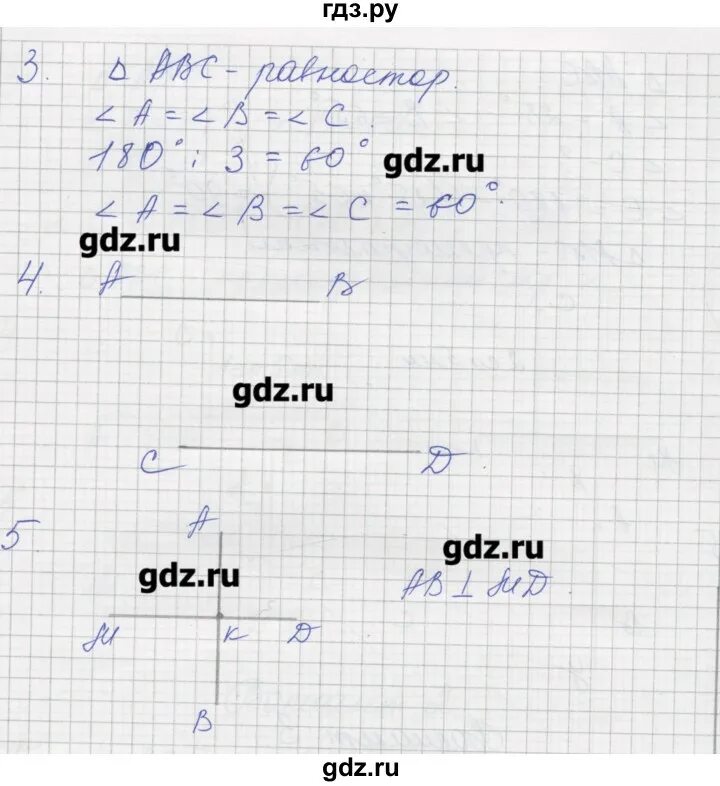 гдз.ру
3. Δ ABC - равностор.
∠ A = ∠ B = ∠ C.
180° : 3 = 60°
gdz.ru
∠ A = ∠ B = ∠ C = 60°.
gdz.ru
4. A B
gdz.ru
C D
5 A
gdz.ru
gdz.ru
AB ⊥ MD
M K D
B
gdz.ru